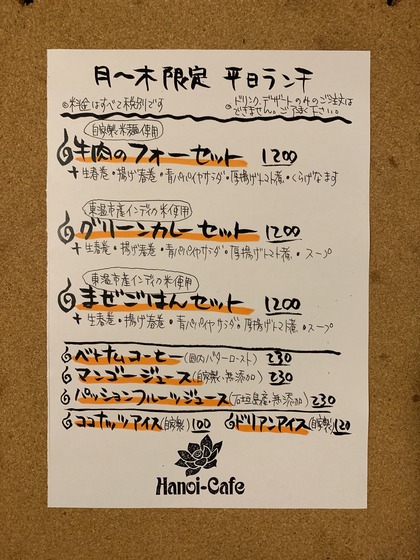 月〜木限定 平日ランチ
◎料金はすべて税別です
◎ドリンク、デザートのみのご注文は
できません。ご了承下さい。
自家製米麺使用
牛肉のフォーセット 1200
+生春巻・揚げ春巻・青パパイヤサラダ・厚揚げトマト煮・くらげなます
東温市産インディカ米使用
グリーンカレーセット 1200
+生春巻・揚げ春巻・青パパイヤサラダ・厚揚げトマト煮・スープ
東温市産インディカ米使用
まぜごはんセット 1200
+生春巻・揚げ春巻・青パパイヤサラダ・厚揚げトマト煮・スープ
ベトナムコーヒー(国内バターロースト) 230
マンゴージュース(自家製・無添加) 230
パッションフルーツジュース(石垣島産・無添加) 230
ココナッツアイス(自家製) 100 ドリアンアイス(自家製) 120
Hanoi-Cafe